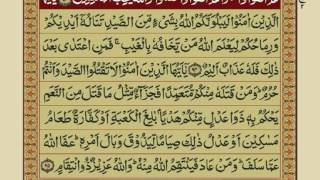 الَّذِيْنَ اٰمَنُوْا لَيَبْلُوَنَّكُمُ اللّٰهُ بِشَيْءٍ مِّنَ الصَّيْدِ تَنَالُهٗٓ اَيْدِيْكُمْ
وَرِمَاحُكُمْ لِيَعْلَمَ اللّٰهُ مَنْ يَّخَافُهٗ بِالْغَيْبِ ۚ فَمَنِ اعْتَدٰى بَعْدَ
ذٰلِكَ فَلَهٗ عَذَابٌ اَلِيْمٌ يٰٓاَيُّهَا الَّذِيْنَ اٰمَنُوْا لَا تَقْتُلُوا الصَّيْدَ وَاَنْتُمْ
حُرُمٌ ؕ وَمَنْ قَتَلَهٗ مِنْكُمْ مُّتَعَمِّدًا فَجَزَآءٌ مِّثْلُ مَا قَتَلَ مِنَ النَّعَمِ
يَحْكُمُ بِهٖ ذَوَا عَدْلٍ مِّنْكُمْ هَدْيًۢا بٰلِغَ الْكَعْبَةِ اَوْ كَفَّارَةٌ طَعَامُ
مَسٰكِيْنَ اَوْ عَدْلُ ذٰلِكَ صِيَامًا لِّيَذُوْقَ وَبَالَ اَمْرِهٖ ؕ عَفَا اللّٰهُ
عَمَّا سَلَفَ ؕ وَمَنْ عَادَ فَيَنْتَقِمُ اللّٰهُ مِنْهُ ؕ وَاللّٰهُ عَزِيْزٌ ذُو انْتِقَامٍ ٩٥